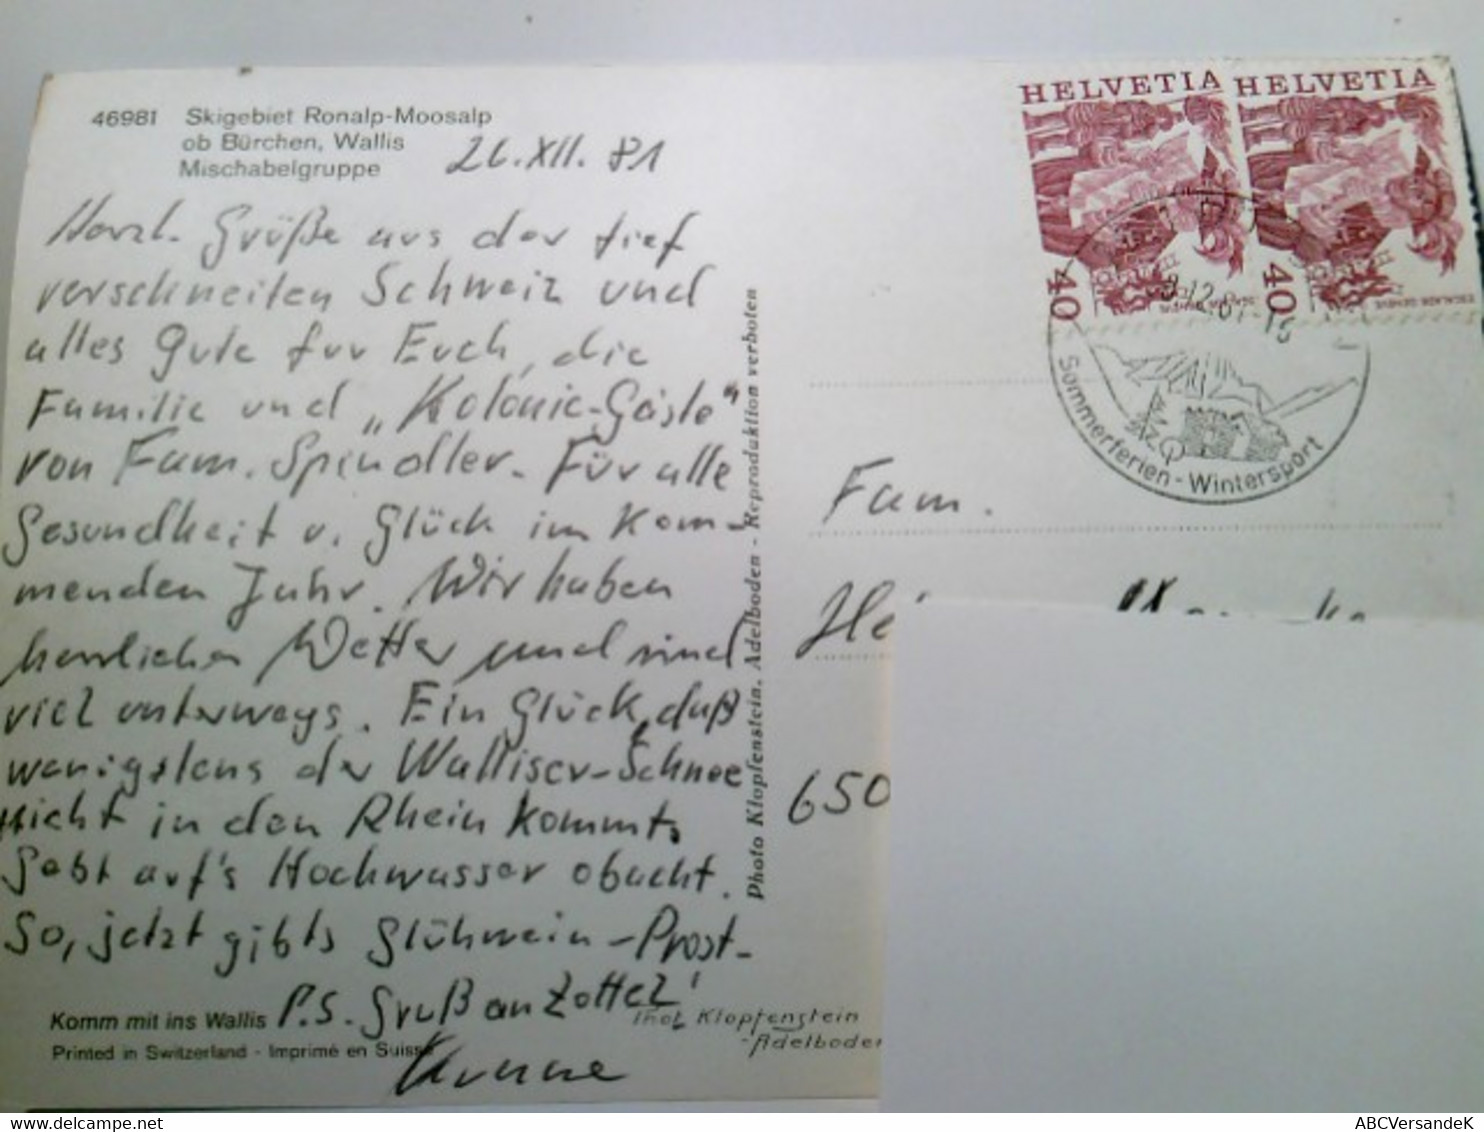 46981 Skigebiet Ronalp-Moosalp
ob Bürchen, Wallis
Mischabelgruppe
26.XII.81
Herzl. Grüße aus der tief
verschneiten Schweiz und
alles Gute für Euch, die
Familie und „Kolonie-Gäste"
von Fam. Spindler. Für alle
Gesundheit u. Glück im Kom-
menden Jahr. Wir haben
herrliches Wetter und sind
viel unterwegs. Ein Glück, daß
wenigstens der Walliser-Schnee
nicht in den Rhein kommt.
Gebt auf's Hochwasser obacht.
So, jetzt gibts Glühwein-Prost-
P.S. Gruß an Zottel!
Komm mit ins Wallis
Printed in Switzerland - Imprimé en Suisse
Photo Klopfenstein, Adelboden - Reproduktion verboten
Phot. Klopfenstein
-Adelboden
HELVETIA HELVETIA
40 40
ESCALADE GENÈVE
Sommerferien - Wintersport
Fam.
He
650
ABCVersandeK